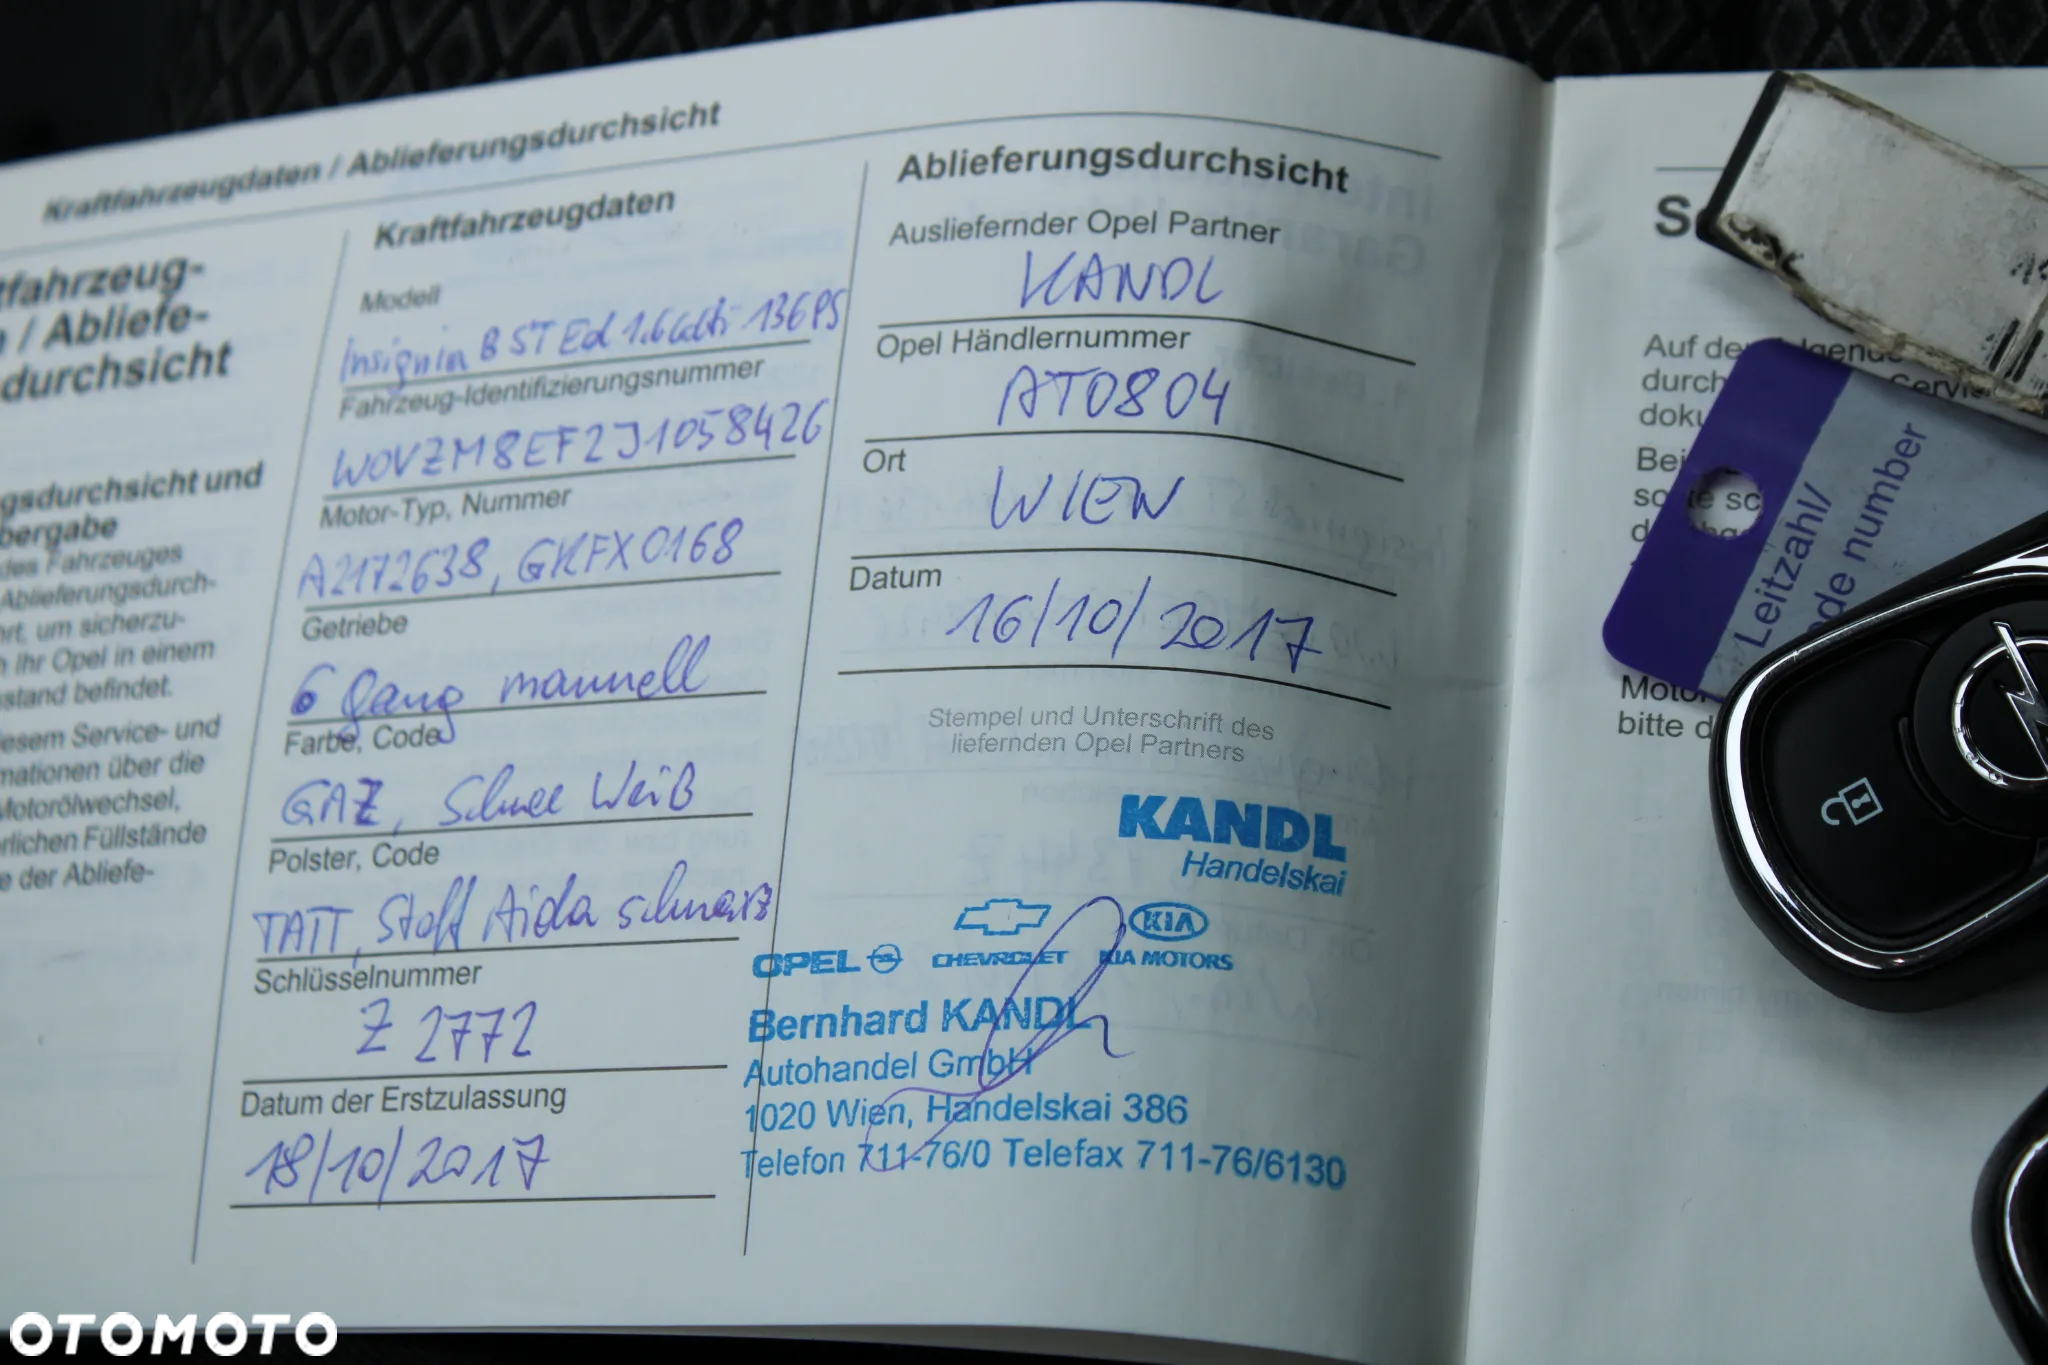 Kraftfahrzeugdaten / Ablieferungsdurchsicht
tfahrzeug-
/ Abliefe-
durchsicht
gsdurchsicht und
bergabe
des Fahrzeuges
Ablieferungsdurch-
hrt, um sicherzu-
h Ihr Opel in einem
stand befindet.
iesem Service- und
mationen über die
Motorölwechsel,
rlichen Füllstände
e der Abliefe-
Kraftfahrzeugdaten
Modell
Insignia B ST Ed 1.6 cdti 136PS
Fahrzeug-Identifizierungsnummer
W0VZM8EF2J1058426
Motor-Typ, Nummer
A2172638, GKFX0168
Getriebe
6 Gang manuell
Farbe, Code
GAZ, Schnee Weiß
Polster, Code
TATT, Stoff Aida schwarz
Schlüsselnummer
Z 2772
Datum der Erstzulassung
18/10/2017
Ablieferungsdurchsicht
Ausliefernder Opel Partner
KANDL
Opel Händlernummer
AT0804
Ort
WIEN
Datum
16/10/2017
Stempel und Unterschrift des
liefernden Opel Partners
KANDL
Handelskai
KIA
OPEL CHEVROLET KIA MOTORS
Bernhard KANDL
Autohandel GmbH
1020 Wien, Handelskai 386
Telefon 711-76/0 Telefax 711-76/6130
Auf de
durch
doku
Bei
bitte d
Leitzahl/
ode number
OTOMOTO